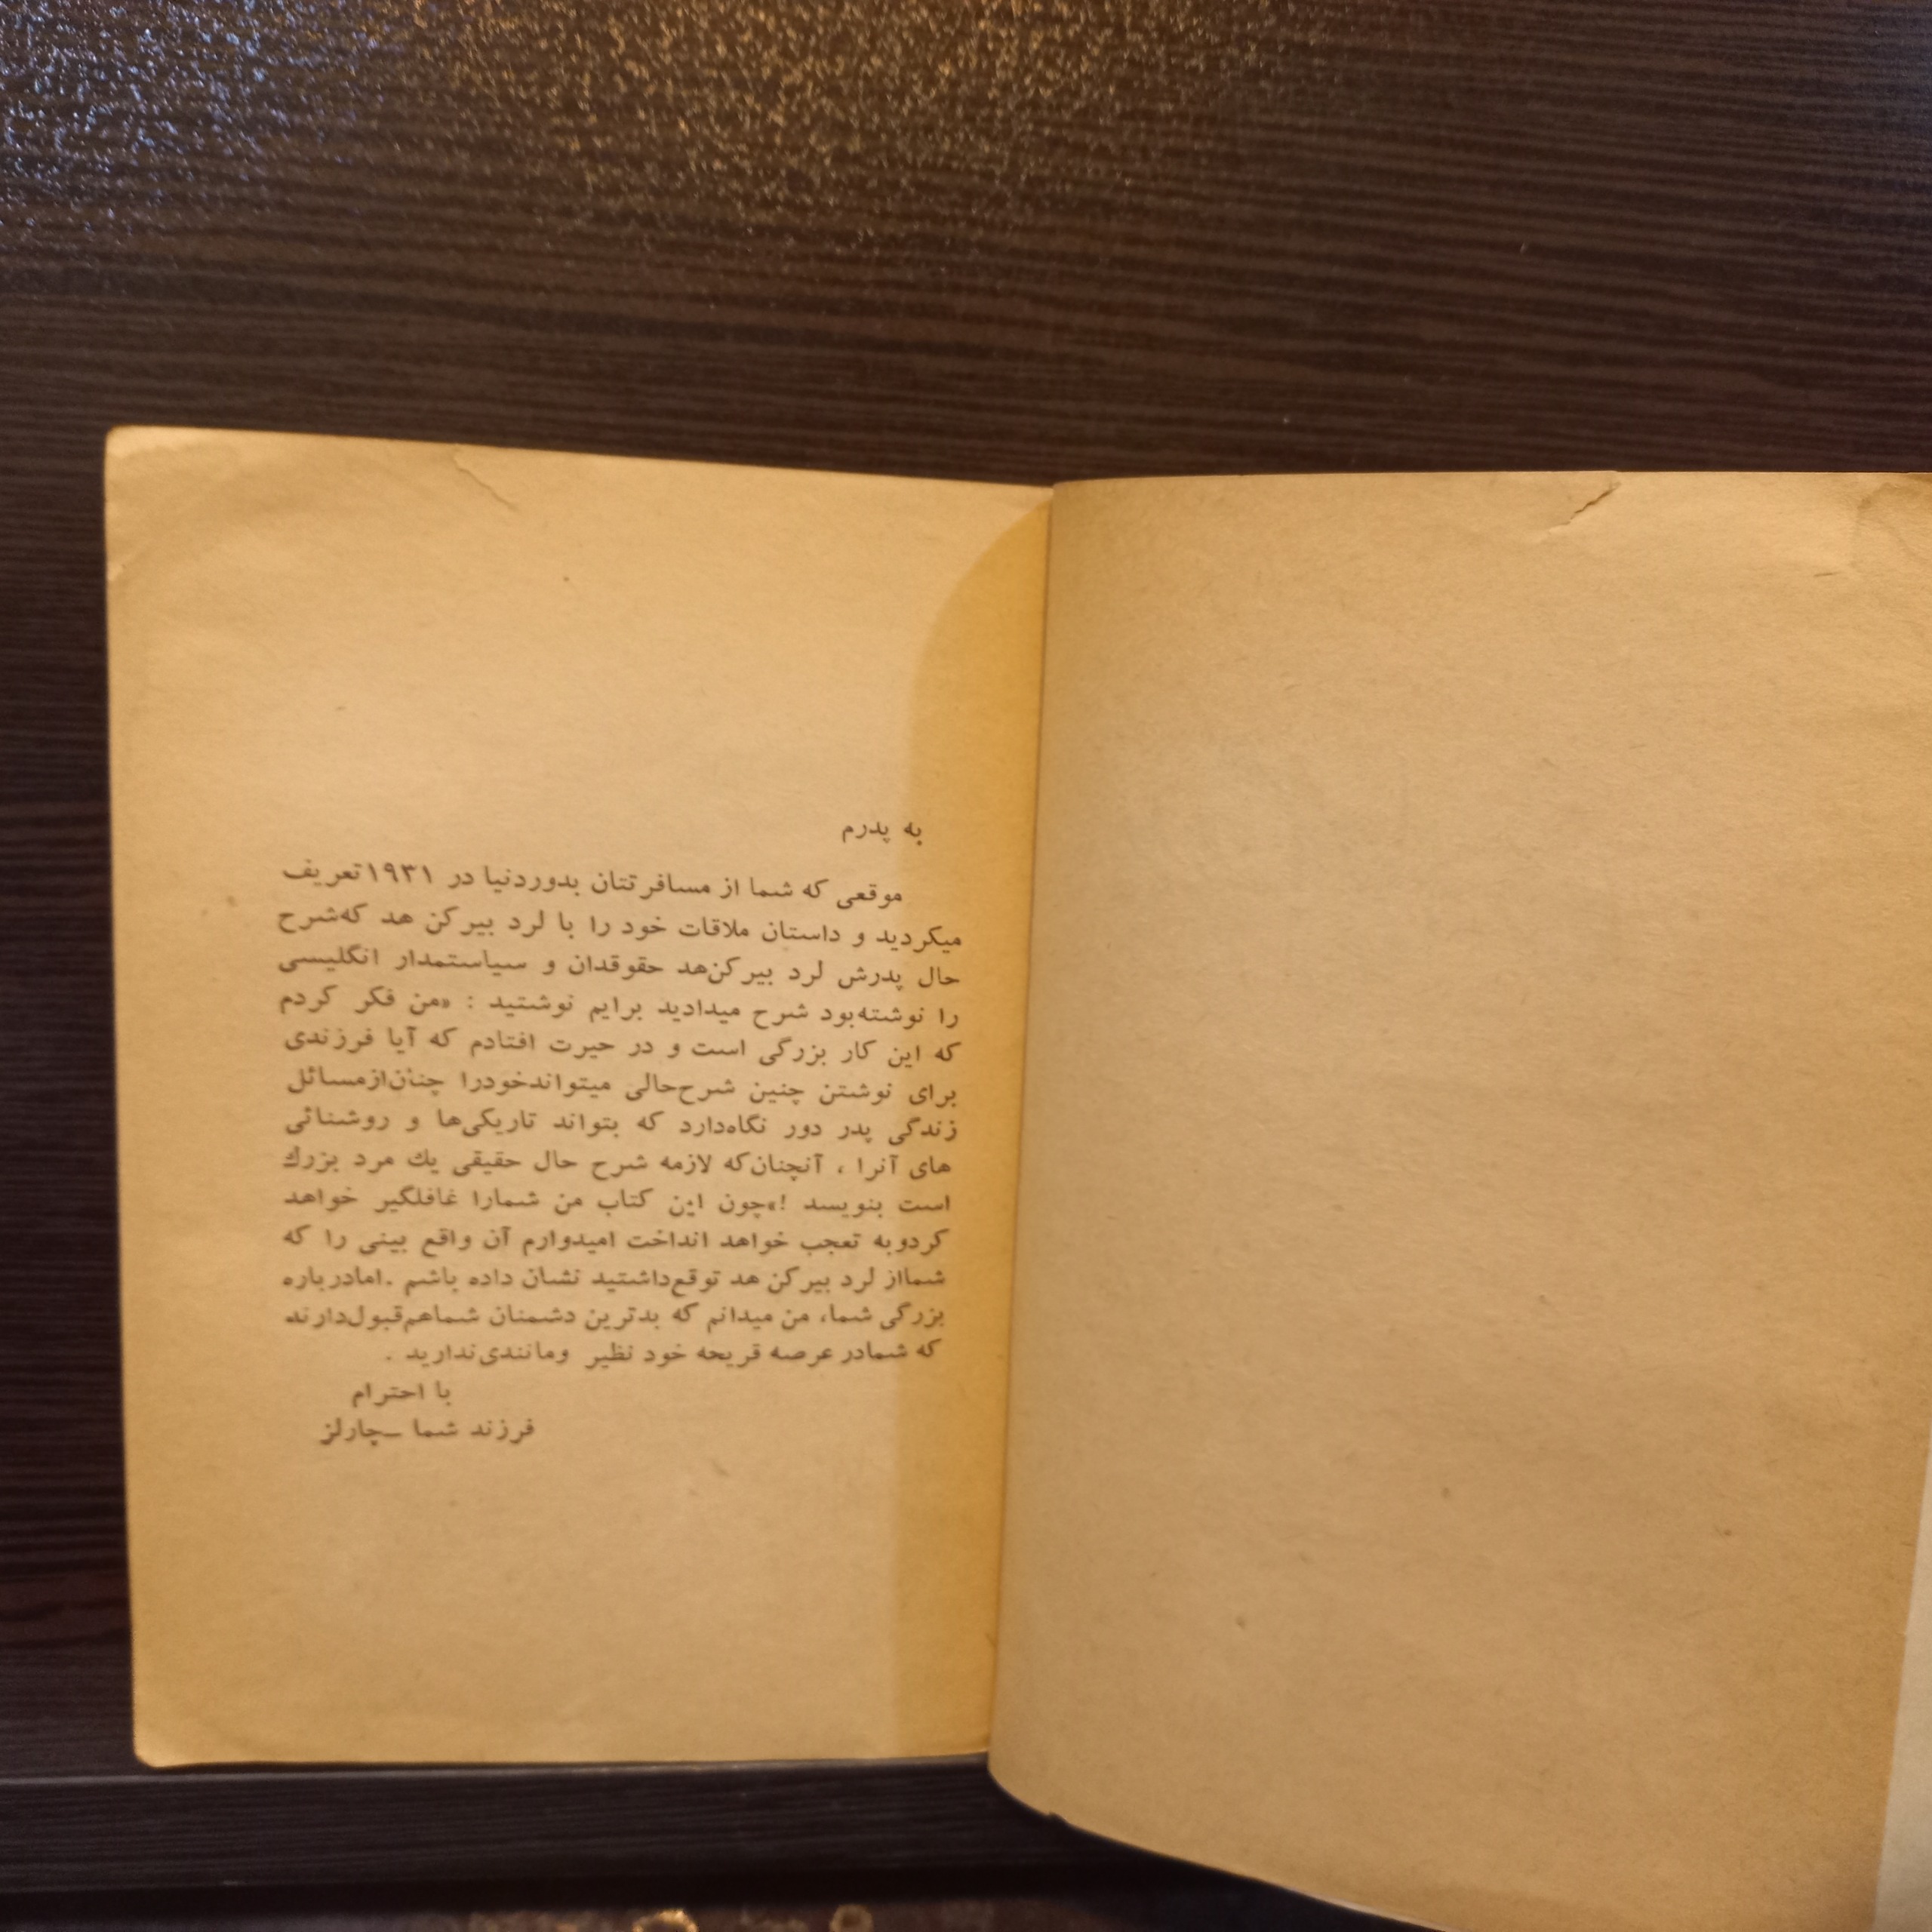 به پدرم
موقعی که شما از مسافرتتان بدوردنیا در ۱۹۳۱ تعریف
میکردید و داستان ملاقات خود را با لرد بیرکن هد که‌شرح
حال پدرش لرد بیرکن‌هد حقوقدان و سیاستمدار انگلیسی
را نوشته‌بود شرح میدادید برایم نوشتید : «من فکر کردم
که این کار بزرگی است و در حیرت افتادم که آیا فرزندی
برای نوشتن چنین شرح‌حالی میتواندخودرا چنان‌ازمسائل
زندگی پدر دور نگاه‌دارد که بتواند تاریکی‌ها و روشنائی
های آنرا ، آنچنان‌که لازمه شرح حال حقیقی یك مرد بزرك
است بنویسد !»چون این کتاب من شمارا غافلگیر خواهد
کردوبه تعجب خواهد انداخت امیدوارم آن واقع بینی را که
شمااز لرد بیرکن هد توقع‌داشتید نشان داده باشم .امادرباره
بزرگی شما، من میدانم که بدترین دشمنان شماهم‌قبول‌دارند
که شمادر عرصه قریحه خود نظیر ومانندی‌ندارید .
با احترام
فرزند شما ــچارلز